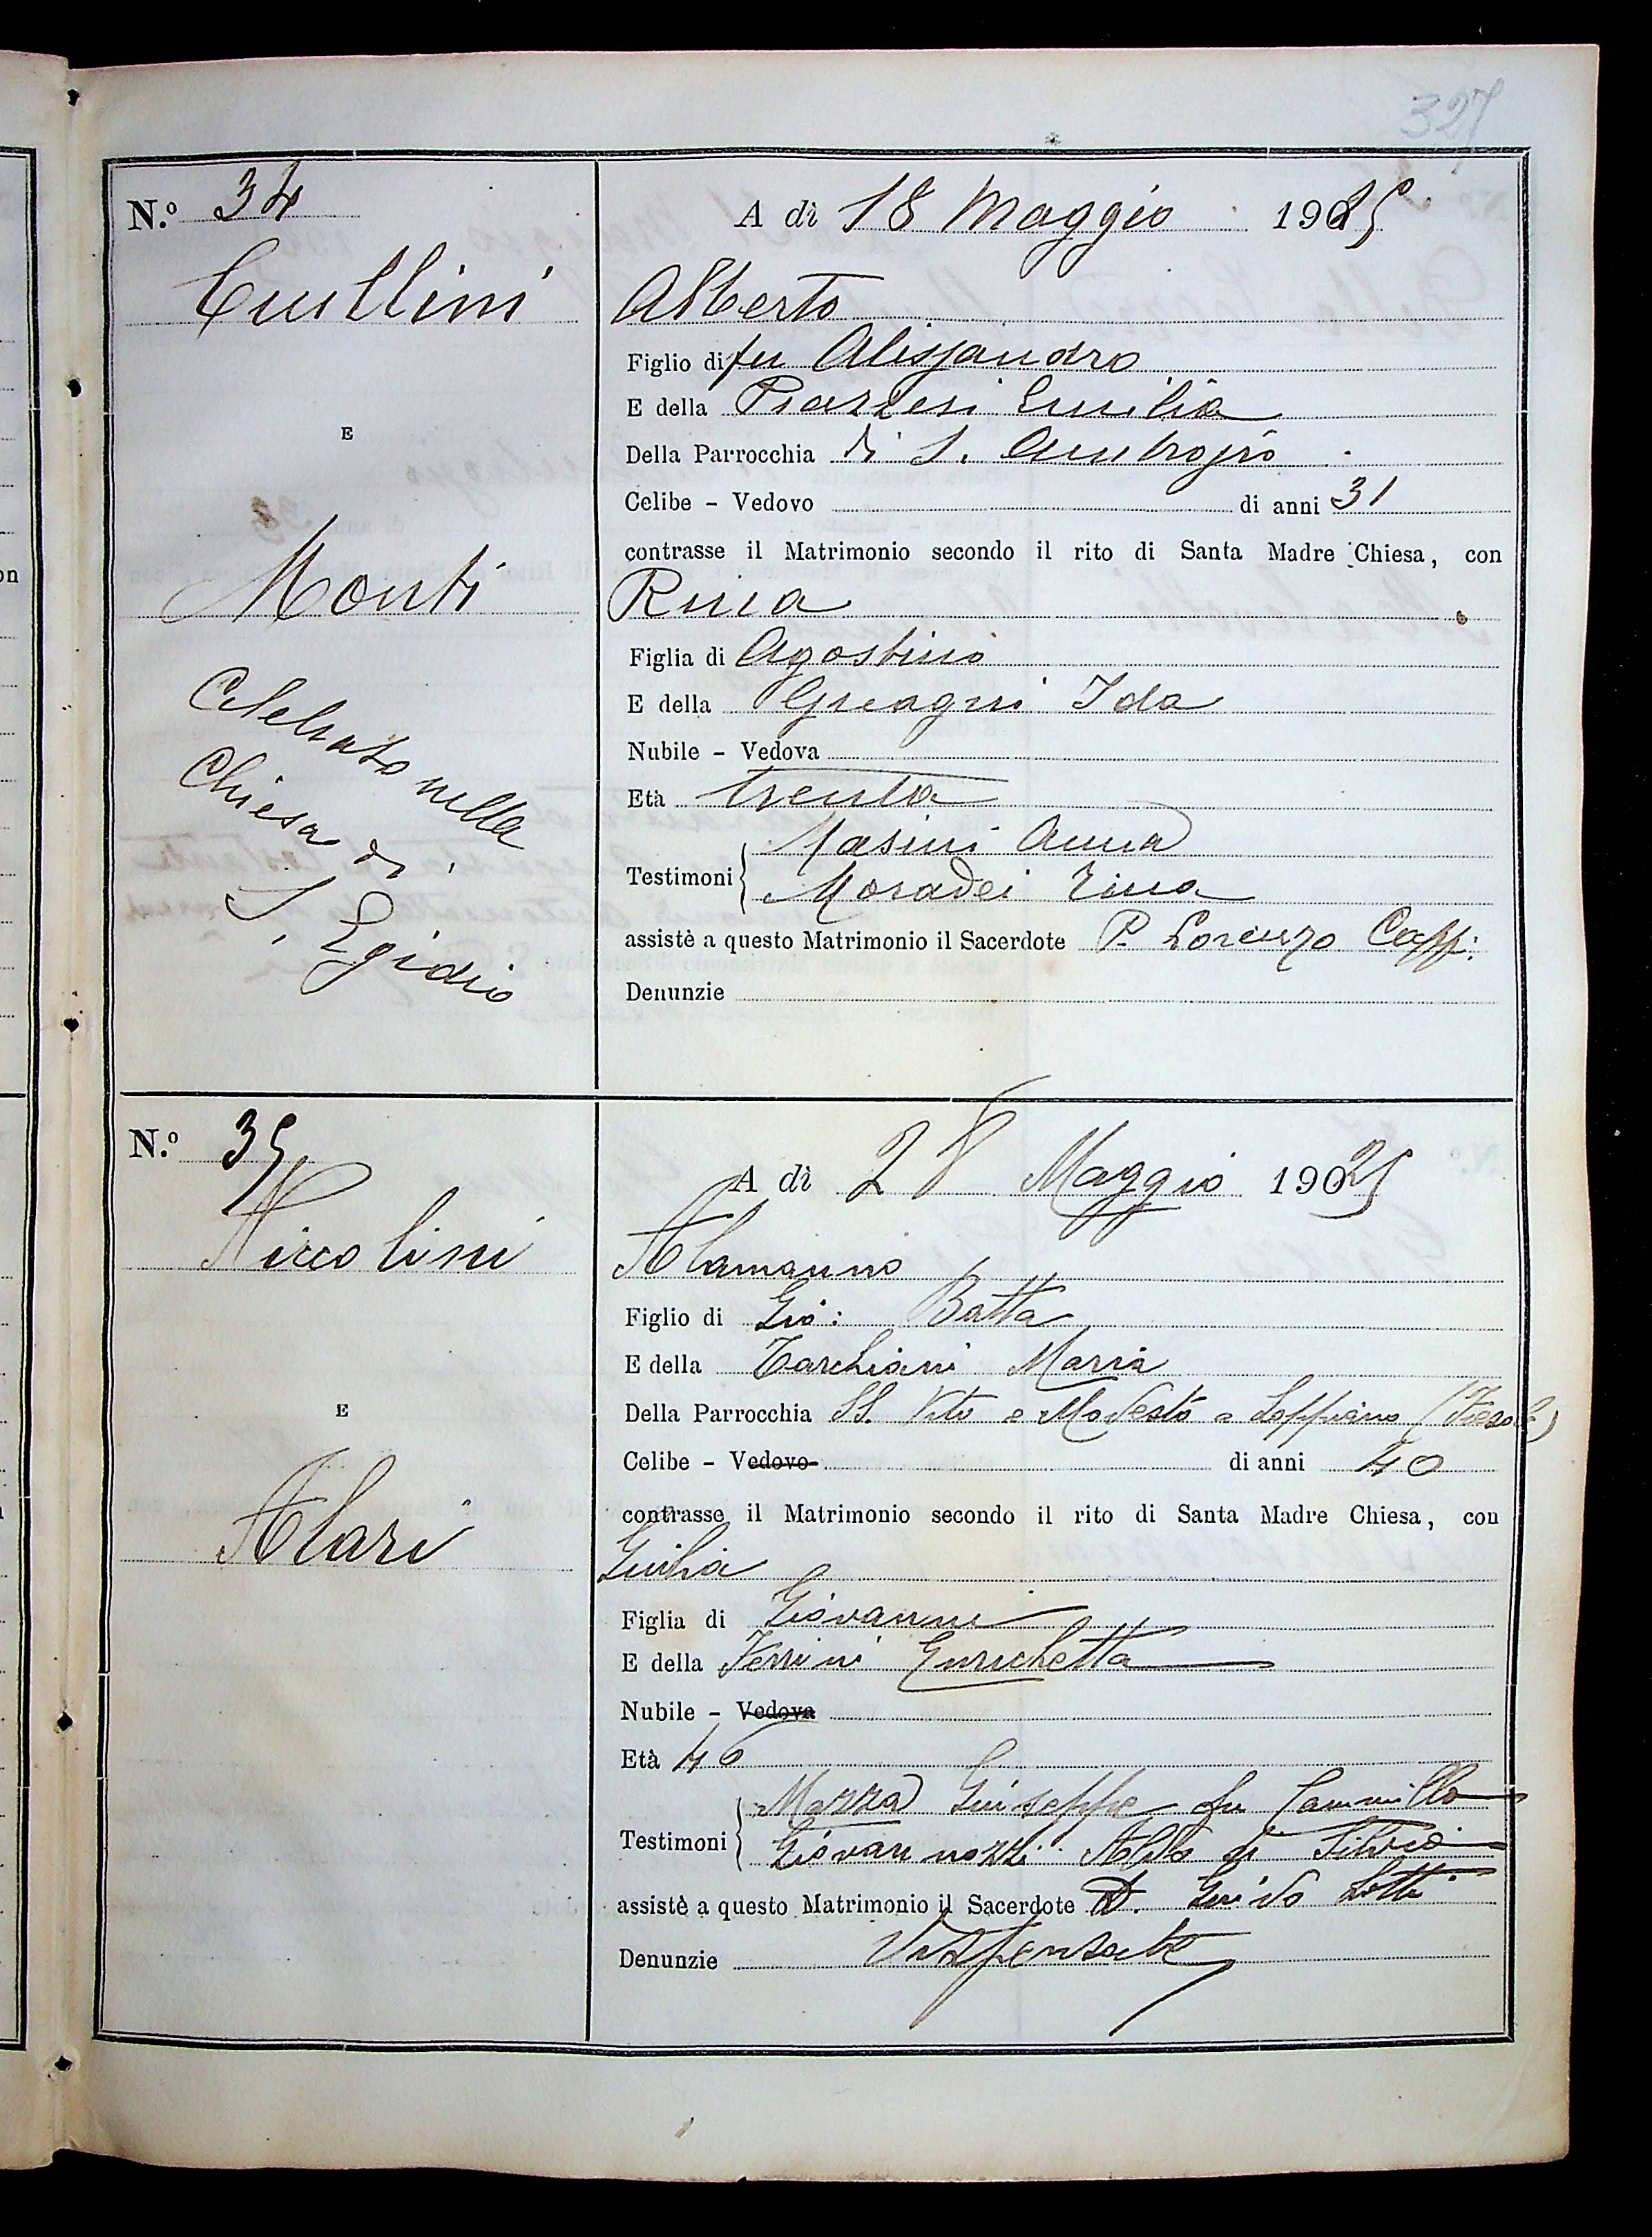 327
N.º 34
A dì 18 Maggio 1925
Cullini
Alberto
Figlio di fu Alessandro
E della Piazzesi Emilia
E
Della Parrocchia di S. Ambrogio
Celibe - Vedovo di anni 31
contrasse il Matrimonio secondo il rito di Santa Madre Chiesa, con
Monti
Rina
Figlia di Agostino
E della Ida
Nubile - Vedova
Celebrato nella
Chiesa di
S. Egidio
Età trenta
Testimoni Masini Anna
Moradei Zina
assistè a questo Matrimonio il Sacerdote P. Lorenzo Capp:
Denunzie
N.º 35
A dì 28 Maggio 1925
Niccolini
Alamanno
Figlio di Gio: Batta
E della Tarchiani Maria
E
Della Parrocchia SS. Vito e Modesto a Loppiano (Fiesole)
Celibe - Vedovo di anni 40
contrasse il Matrimonio secondo il rito di Santa Madre Chiesa, con
Alari
Giulia
Figlia di Giovanni
E della Ferrini Enrichetta
Nubile - Vedova
Età 40
Testimoni Mazza Giuseppe fu Cammillo
Giovannozzi Aldo di Silvio
assistè a questo Matrimonio il Sacerdote D. Guido Lotti
Denunzie Dispensate